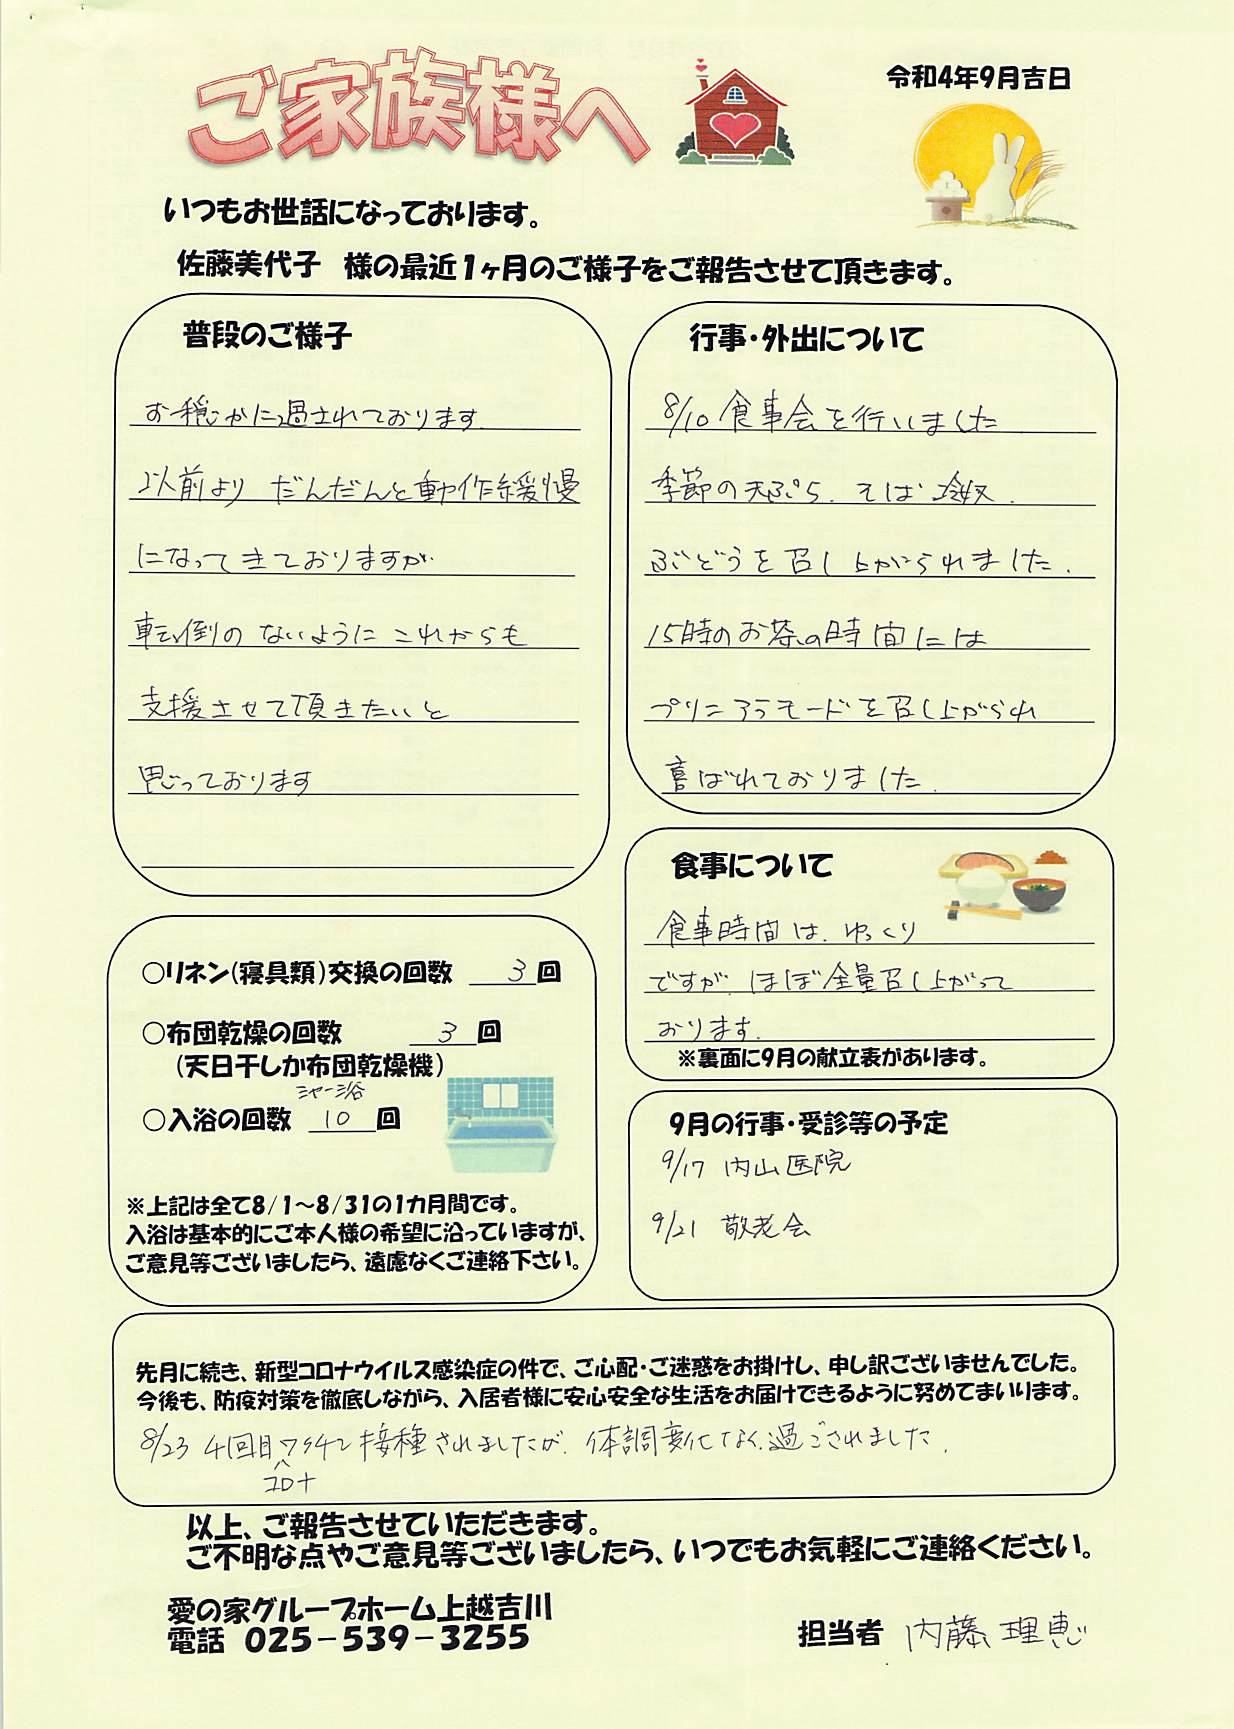 ご家族様へ
令和4年9月吉日
いつもお世話になっております。
佐藤美代子 様の最近1ヶ月のご様子をご報告させて頂きます。
普段のご様子
お穏かに過されております
以前より だんだんと動作緩慢
になってきておりますが
転倒の ないように これからも
支援させて頂きたいと
思っております
行事・外出について
8/10 食事会を行いました
季節の天ぷら、そば 冷奴、
ぶどうを召し上がられました.
15時のお茶の時間には
プリンアラモードを召し上がられ
喜ばれておりました.
食事について
食事時間は、ゆっくり
ですが、ほぼ全量召し上がって
おります.
※裏面に9月の献立表があります。
○リネン(寝具類)交換の回数 3回
○布団乾燥の回数 3回
(天日干しか布団乾燥機)
シャワー浴
○入浴の回数 10回
※上記は全て8/1～8/31の1カ月間です。
入浴は基本的にご本人様の希望に沿っていますが、
ご意見等ございましたら、遠慮なくご連絡下さい。
9月の行事・受診等の予定
9/17 内山医院
9/21 敬老会
先月に続き、新型コロナウイルス感染症の件で、ご心配・ご迷惑をお掛けし、申し訳ございませんでした。
今後も、防疫対策を徹底しながら、入居者様に安心安全な生活をお届けできるように努めてまいります。
8/23 4回目ワクチン接種されましたが、体調変化なく、過ごされました.
コロナ
以上、ご報告させていただきます。
ご不明な点やご意見等ございましたら、いつでもお気軽にご連絡ください。
愛の家グループホーム上越吉川
電話 025-539-3255
担当者 内藤 理恵